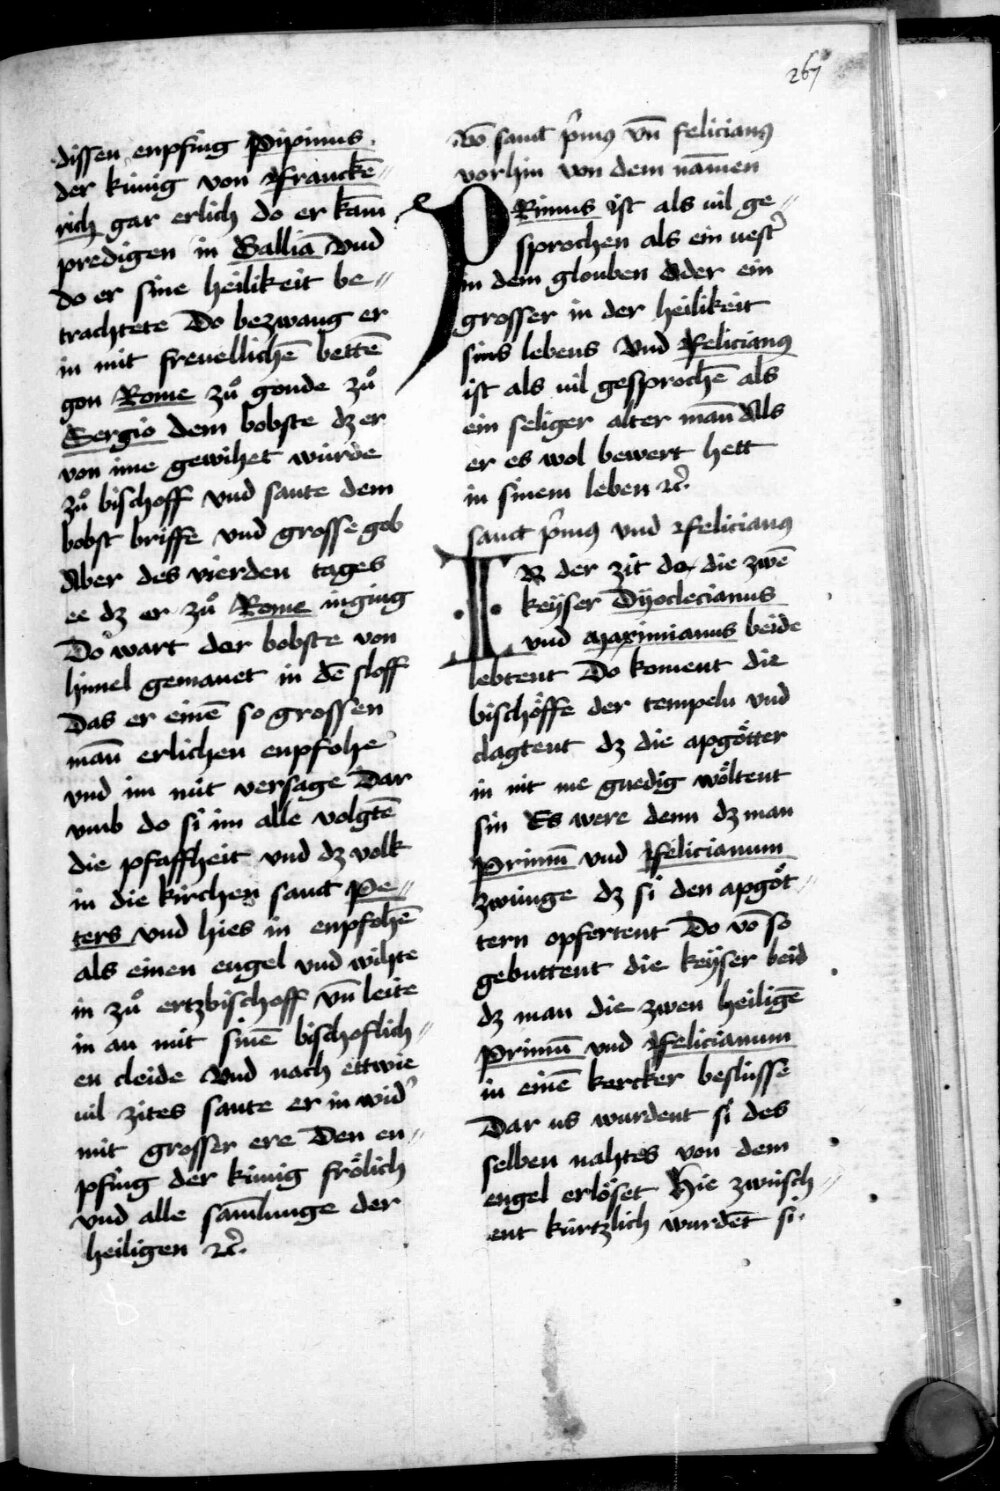 267
dissen enpfing Pipinus.
der kúnig von Franckē-
rich gar erlich do er kam̄
predigen in Gallia Vnd
do er sine heilikeit be-
trachtete Do bezwang er
in mit freuellichē bettē
gon Rome zů gonde zů
Sergio dem bobste dz er
von ime gewihet wúrde
zů bischoff vnd sante dem
bobst briffe vnd grosse gob
Aber des vierden tages
ee dz er zů Rome inging
Do wart der bobste von
himel gemanet in dē sloff
Das er einē so grossen
man̄ erlichen enpfohe
vnd im nút versage Dar
vmb do si im alle volgtē
die pfaffheit vnd dz volk
in die kirchen sanct Pe-
ters vnd hies in enpfohē
als einen engel vnd wihte
in zů ertzbischoff vn̄ leite
in an mit sinē bischoflich-
en cleide Vnd nach ettwie
uil zites sante er in wid'
mit grosser ere Den en-
pfing der kúnig frölich
vnd alle sam̄lunge der
heiligen ꝛc̄.
Vō sanct p̄mꝰ vn̄ felicianꝰ
vorhin von dem nam̄en
PRimus ist als uil ge-
sprochen als ein uest'
in dem glouben Oder ein
grosser in der heilikeit
sins lebens Vnd Felicianꝰ
ist als uil gesprochē als
ein seliger alter man̄ Als
er es wol bewert hett
in sinem leben ꝛc̄.
sanct p̄mꝰ vnd Felicianꝰ
IN der zit do die zwē
keyser Dyoclecianus
vnd Maximianus beide
lebtent Do koment die
bischöffe der tempeln vnd
clagtent dz die apgötter
in nit me gnedig wöltent
sin Es were denn dz man
Primū vnd Felicianum
zwúnge dz si den apgöt-
tern opfertent Do vō so
gebuttent die keyser beid
dz man die zwen heiligē
Primū vnd Felicianum
in einē kercker beslússe
Dar us wurdent si des
selben nahtes von dem
engel erlöset Hie zwúsch-
ent kúrtzlich wurdēt si.